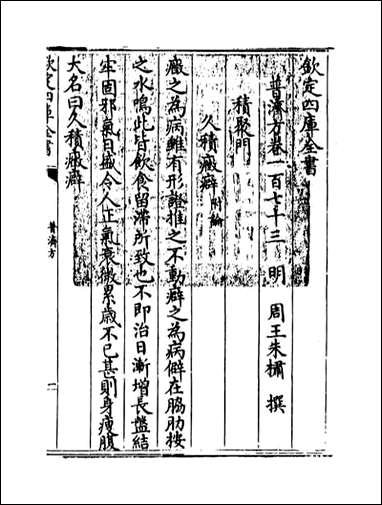 欽定四庫全書
普濟方卷一百七十三 明 周王朱橚 撰
積聚門
久積癥癖 附論
癥之為病雖有形證推之不動癖之為病僻在脇肋按
之水鳴此皆飲食留滯所致也不即治日漸增長盤結
牢固邪氣日盛令人正氣衰微累歲不已甚則身瘦腹
大名曰久積癥癖
欽定四庫全書
普濟方
一